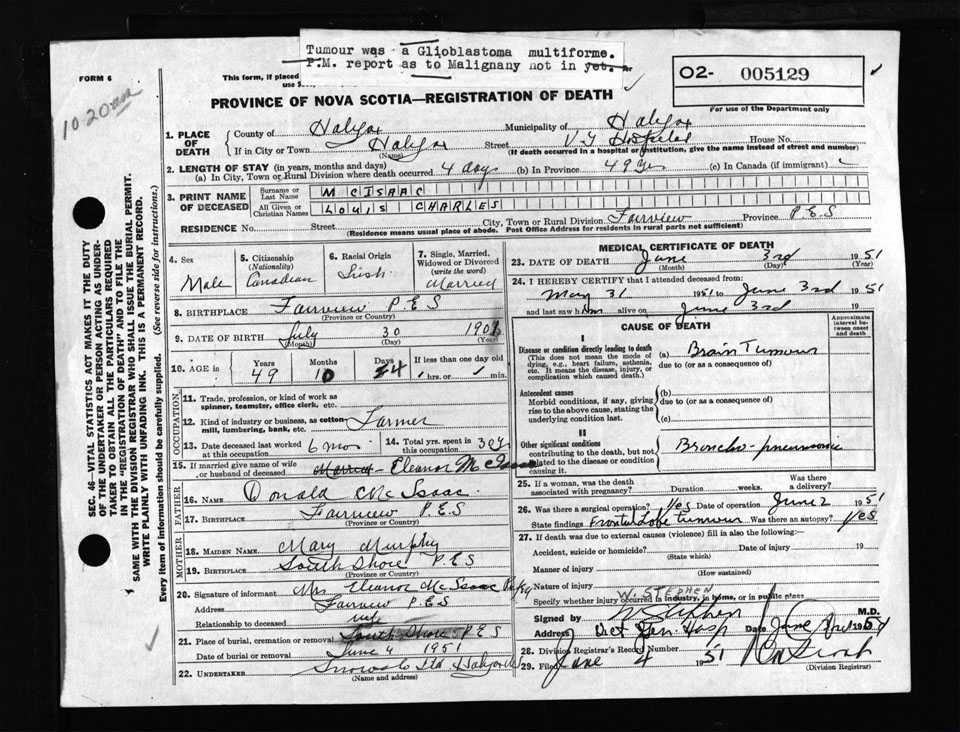 Tumour was a Glioblastoma multiforme.
P.M. report as to Malignany not in yet.
FORM 6
This form, if placed
use
O2- 005129
For use of the Department only
10.20 am
PROVINCE OF NOVA SCOTIA—REGISTRATION OF DEATH
SEC. 46—VITAL STATISTICS ACT MAKES IT THE DUTY
OF THE UNDERTAKER OR PERSON ACTING AS UNDER-
TAKER TO OBTAIN ALL THE PARTICULARS REQUIRED
IN THE "REGISTRATION OF DEATH" AND TO FILE THE
SAME WITH THE DIVISION REGISTRAR WHO SHALL ISSUE THE BURIAL PERMIT.
WRITE PLAINLY WITH UNFADING INK. THIS IS A PERMANENT RECORD.
Every item of information should be carefully supplied. (See reverse side for instructions.)
1. PLACE OF DEATH
County of Halifax Municipality of Halifax
If in City or Town Halifax Street V.G Hospital House No.
(Name) (If death occurred in a hospital or institution, give the name instead of street and number)
2. LENGTH OF STAY (in years, months and days)
(a) In City, Town or Rural Division where death occurred 4 days (b) In Province 49 yrs (c) In Canada (if immigrant)
3. PRINT NAME OF DECEASED
Surname or Last Name MCISAAC
All Given or Christian Names LOUIS CHARLES
RESIDENCE No. Street City, Town or Rural Division Fairview Province P.E.S
(Residence means usual place of abode. Post Office Address for residents in rural parts not sufficient)
4. Sex Male
5. Citizenship (Nationality) Canadian
6. Racial Origin Irish
7. Single, Married, Widowed or Divorced (write the word) Married
8. BIRTHPLACE Fairview P.E.S
(Province or Country)
9. DATE OF BIRTH July 30 1901
(Month) (Day) (Year)
10. AGE in Years 49 Months 10 Days 4 If less than one day old
hrs. or min.
OCCUPATION
11. Trade, profession, or kind of work as
spinner, teamster, office clerk, etc.
12. Kind of industry or business, as cotton
mill, lumbering, bank, etc. Farmer
13. Date deceased last worked at this occupation 6 mos
14. Total yrs. spent in this occupation 30 y
15. If married give name of wife
or husband of deceased Married - Eleanor McIsaac
FATHER
16. NAME Donald McIsaac
17. BIRTHPLACE Fairview P.E.S
(Province or Country)
MOTHER
18. MAIDEN NAME Mary Murphy
19. BIRTHPLACE South Shore P.E.S
(Province or Country)
20. Signature of informant Mrs Eleanor McIsaac
Address Fairview P.E.S
Relationship to deceased wife
21. Place of burial, cremation or removal South Shore P.E.S
Date of burial or removal June 4 1951
22. UNDERTAKER Snows & Ltd. Halifax
(Name and address)
MEDICAL CERTIFICATE OF DEATH
23. DATE OF DEATH June 3rd 1951
(Month) (Day) (Year)
24. I HEREBY CERTIFY that I attended deceased from:
May 31 1951 to June 3rd 1951
and last saw him alive on June 3rd 19
CAUSE OF DEATH
Approximate interval between onset and death
I
Disease or condition directly leading to death
(This does not mean the mode of
dying, e.g., heart failure, asthenia,
etc. It means the disease, injury, or
complication which caused death.)
(a) Brain Tumour
due to (or as a consequence of)
Antecedent causes
Morbid conditions, if any, giving
rise to the above cause, stating the
underlying condition last.
(b)
due to (or as a consequence of)
(c)
II
Other significant conditions
contributing to the death, but not
related to the disease or condition
causing it.
Broncho-pneumonia
25. If a woman, was the death
associated with pregnancy? Duration weeks. Was there a delivery?
26. Was there a surgical operation? Yes Date of operation June 2 1951
State findings Frontal Lobe Tumour Was there an autopsy? Yes
27. If death was due to external causes (violence) fill in also the following:—
Accident, suicide or homicide? Date of injury 19
(State which)
Manner of injury
(How sustained)
Nature of injury
Specify whether injury occurred in industry, in home, or in public place
W. STEPHEN
Signed by W Stephen M.D.
Address Vict Gen Hosp Date June 3rd 1951
28. Division Registrar's Record Number
29. Filed June 4 1951
(Division Registrar)